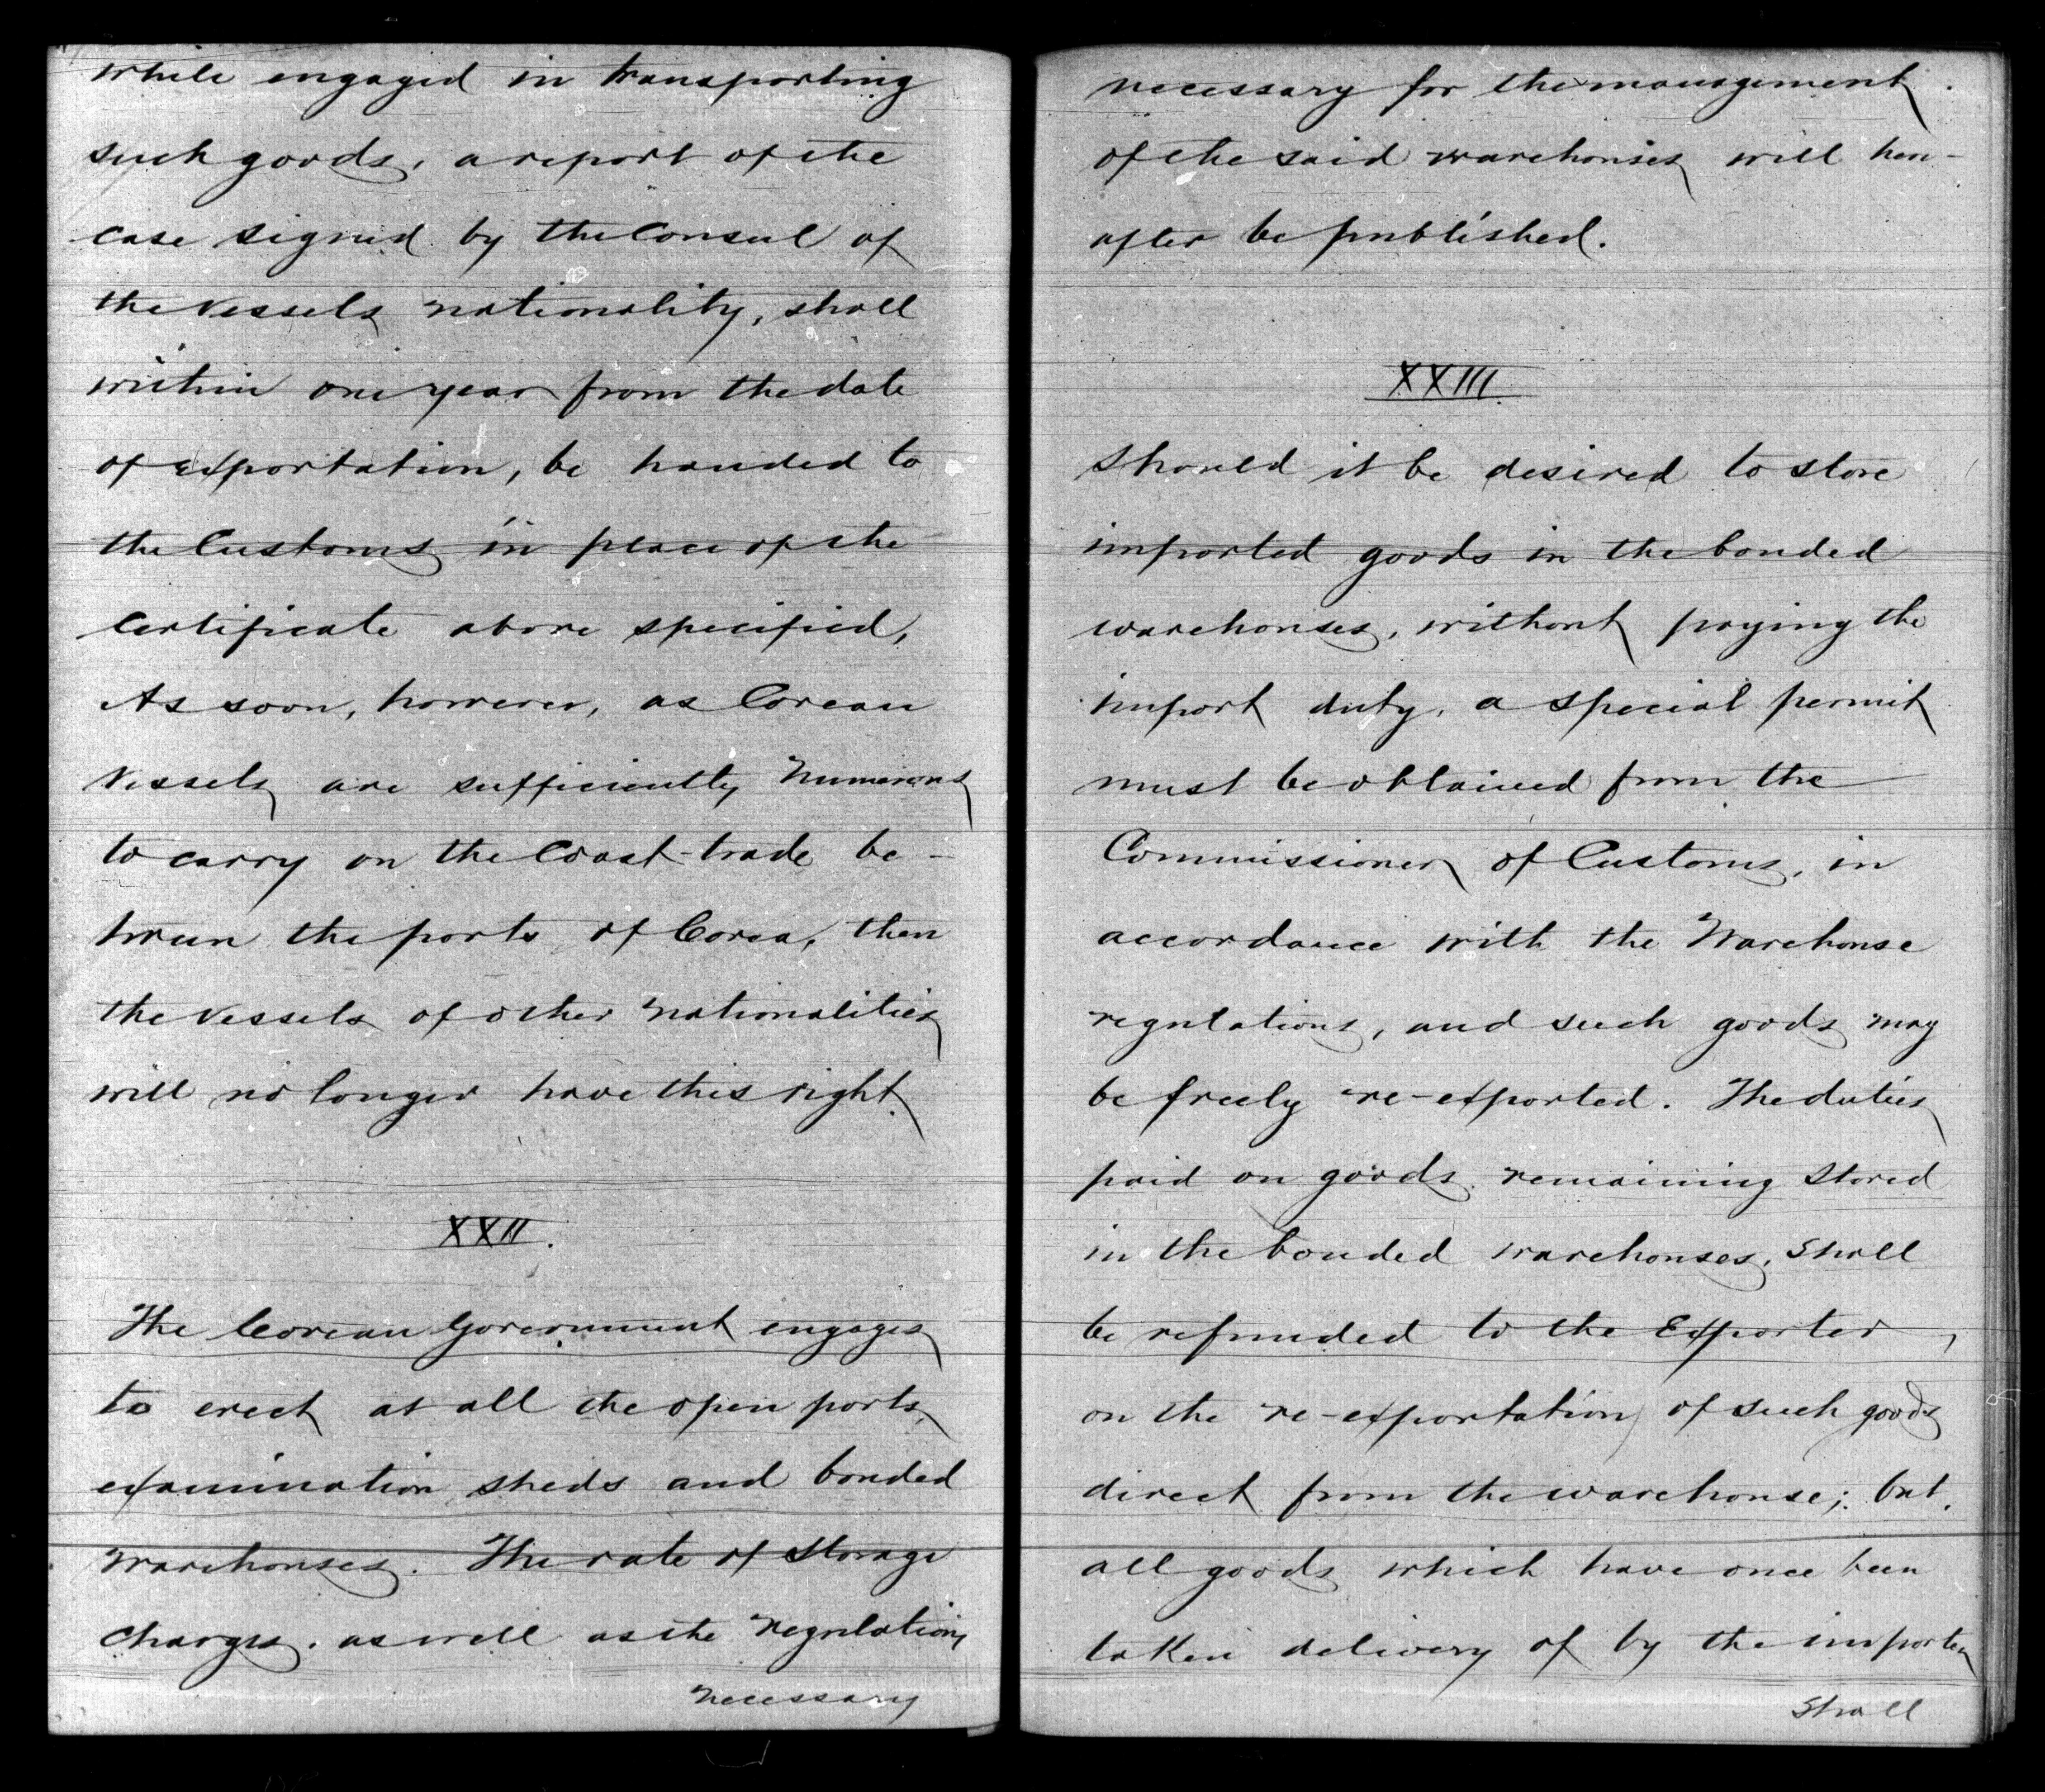 while engaged in transporting
such goods, a report of the
case signed by the Consul of
the Vessels nationality, shall
within one year from the date
of exportation, be handed to
the Customs in place of the
Certificate above specified,
As soon, however, as Corean
Vessels are sufficiently numerous
to carry on the Coast-trade be-
tween the ports of Corea, then
the Vessels of other nationalities
will no longer have this right.
XXII.
The Corean Government engages
to erect at all the open ports,
examination sheds and bonded
warehouses. The rate of Storage
Charges, as well as the regulations
necessary
necessary for the management
of the said warehouses will here-
after be published.
XXIII.
Should it be desired to store
imported goods in the bonded
warehouses, without paying the
import duty, a special permit
must be obtained from the
Commissioner of Customs, in
accordance with the Warehouse
regulations, and such goods may
be freely re-exported. The duties
paid on goods remaining stored
in the bonded warehouses, shall
be refunded to the Exporter,
on the re-exportation of such goods
direct from the warehouse; but,
all goods which have once been
taken delivery of by the importer
Shall